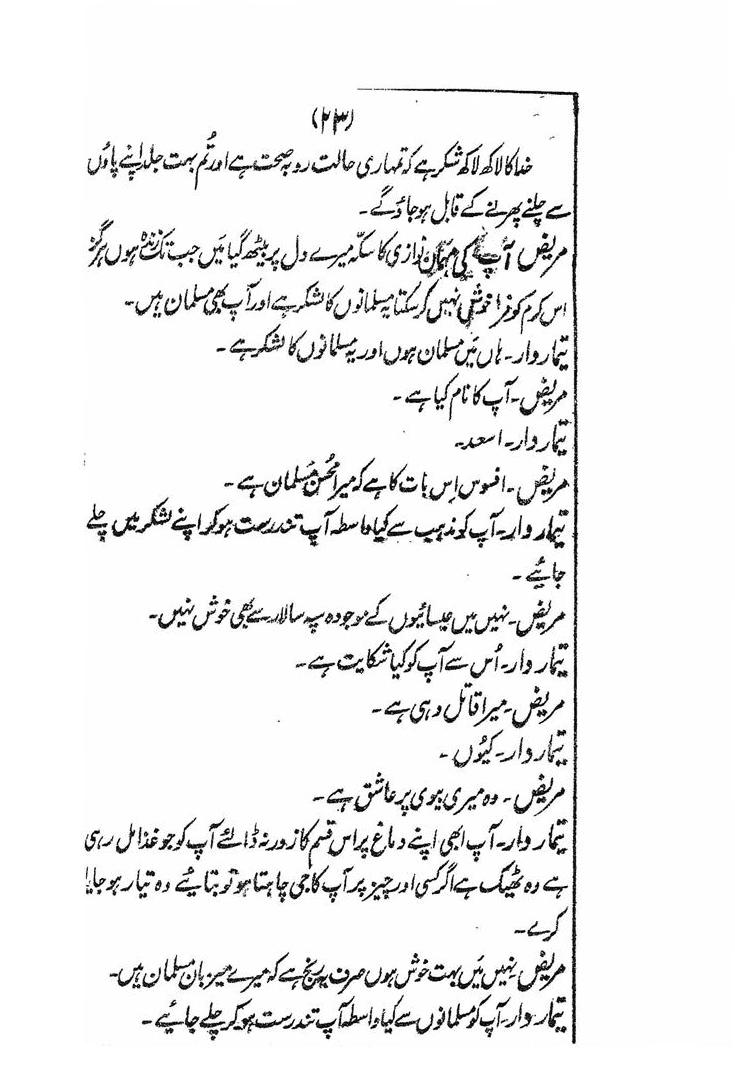 (۲۳)
خدا کا لاکھ لاکھ شکر ہے کہ تمہاری حالت روبہ صحت ہے اور تُم بہت جلد اپنے پاؤں
سے چلنے پھرنے کے قابل ہو جاؤ گے۔
مریض آپ کی مہمان نوازی کا سکّہ میرے دل پر بیٹھ گیا میں جب تک زندہ ہوں ہرگز
اس کرم کو فراموش نہیں کر سکتا یہ مسلمانوں کا لشکر ہے اور آپ بھی مسلمان ہیں۔
تیمار دار۔ ہاں میں مسلمان ہوں اور یہ مسلمانوں کا لشکر ہے۔
مریض۔ آپ کا نام کیا ہے۔
تیمار دار۔ اسعد۔
مریض۔ افسوس اِس بات کا ہے کہ میرا محُسن مُسلمان ہے۔
تیمار دار۔ آپ کو مذہب سے کیا واسطہ آپ تندرست ہو کر اپنے لشکر میں چلے
جائیے۔
مریض۔ نہیں میں عیسائیوں کے موجودہ سپہ سالار سے بھی خوش نہیں۔
تیمار دار۔ اُس سے آپ کو کیا شکایت ہے۔
مریض۔ میرا قاتل وہی ہے۔
تیمار دار۔ کیُوں۔
مریض۔ وہ میری بیوی پر عاشق ہے۔
تیمار دار۔ آپ ابھی اپنے دماغ پر اس قسم کا زور نہ ڈالئے آپ کو جو غذا مل رہی
ہے وہ ٹھیک ہے اگر کسی اور چیز پر آپ کا جی چاہتا ہو تو بتائیے وہ تیار ہو جایا
کرے۔
مریض۔ نہیں میں بہت خوش ہوں صرف یہ رنج ہے کہ میرے میزبان مسلمان ہیں۔
تیمار دار۔ آپ کو مسلمانوں سے کیا واسطہ آپ تندرست ہو کر چلے جائیے۔